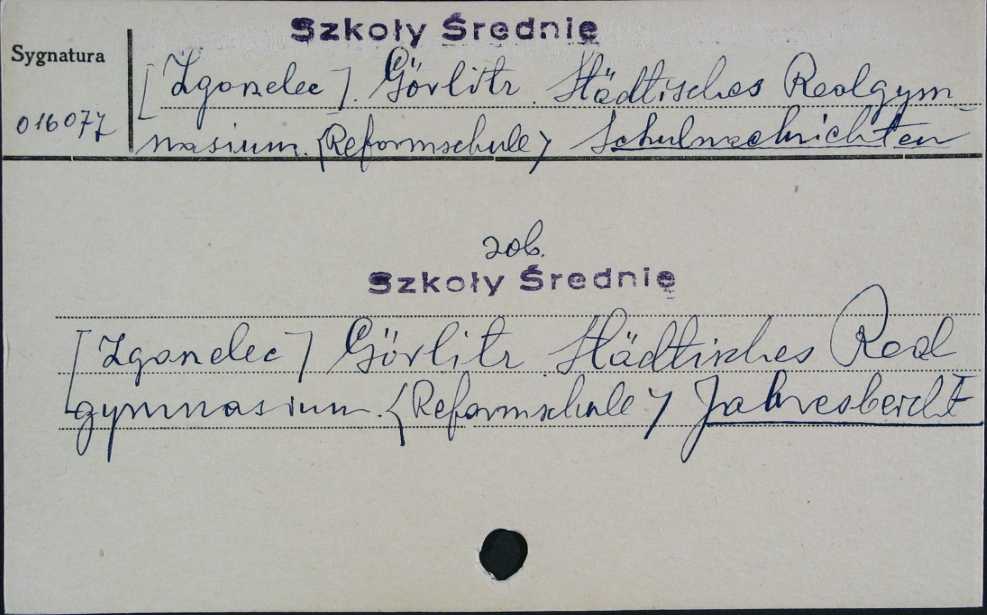 Szkoły Średnie
Sygnatura
[Zgorzelec]. Görlitz. Städtisches Realgym-
016077
nasium. (Reformschule) Schulnachrichten
zob.
Szkoły Średnie
[Zgorzelec] Görlitz. Städtisches Real
gymnasium. (Reformschule) Jahresbericht